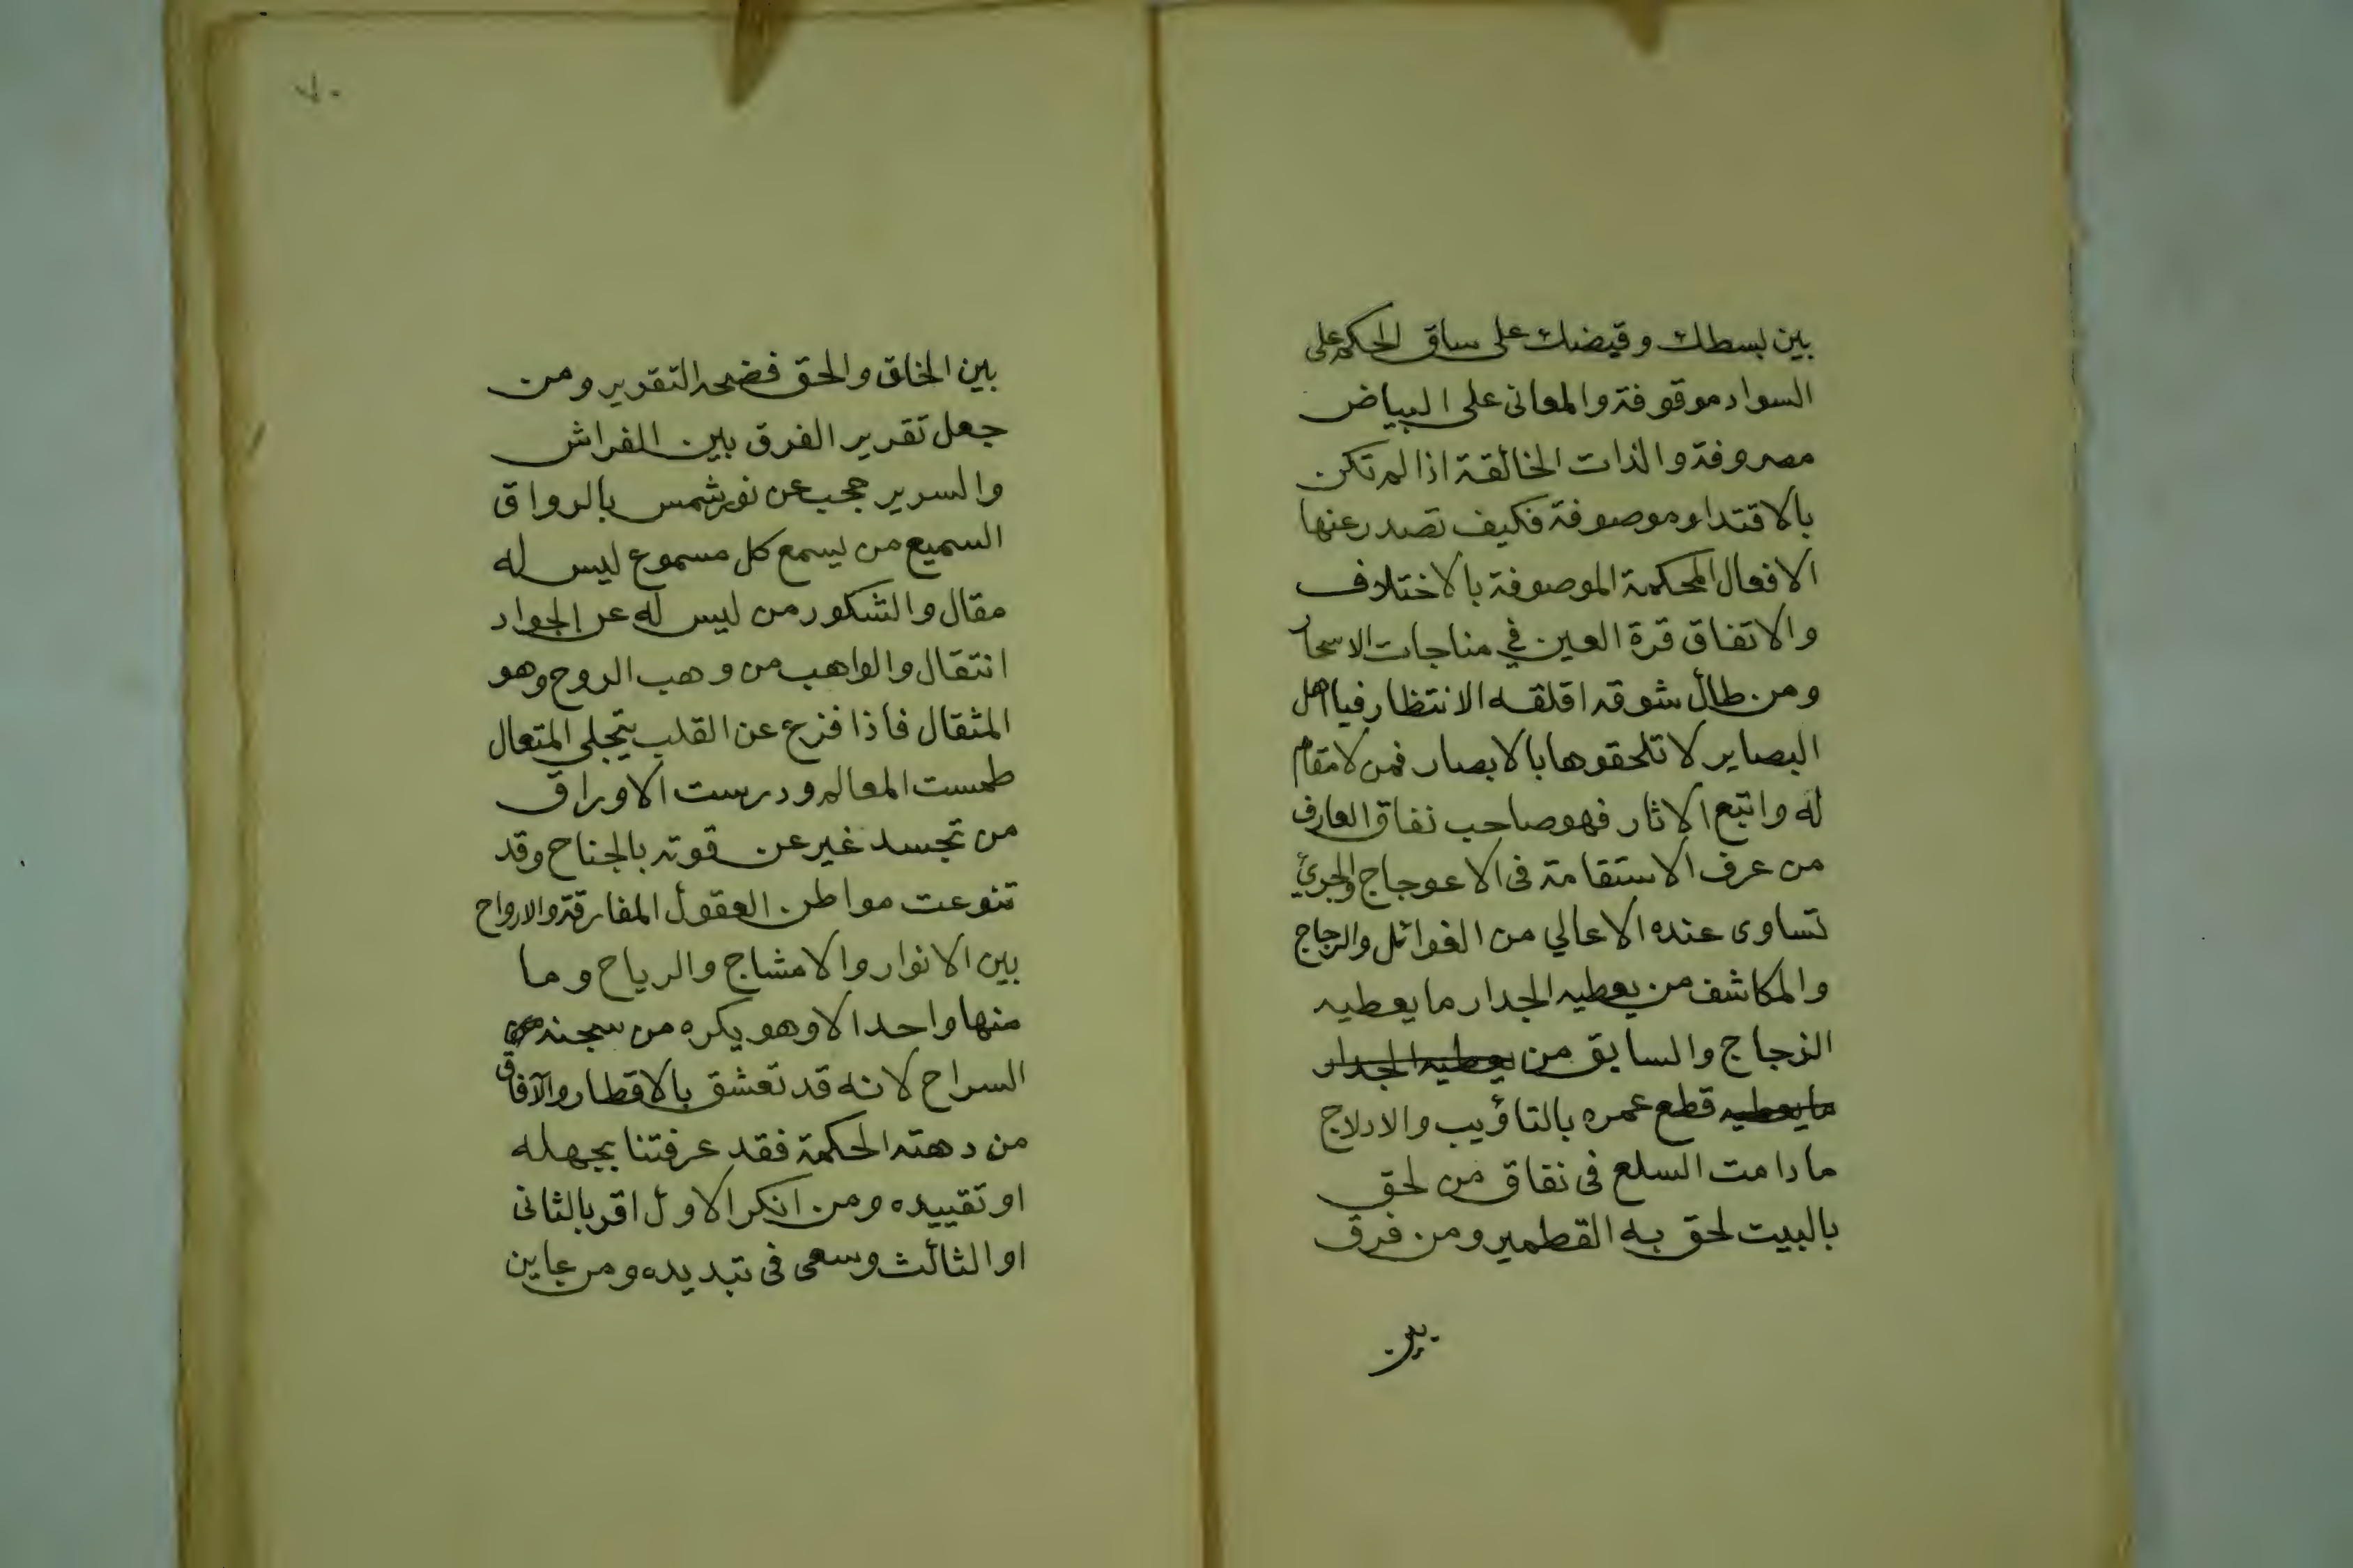 بين بسطك وقبضك على ساق الحكم على
السواد موقوفة والمعانى على البياض
مصروفة والذات الخالقة اذا لم تكن
بالاقتدار موصوفة فكيف تصدر عنها
الافعال المحكمة الموصوفة بالاختلاف
والاتفاق قرة العين في مناجات الاسحار
ومن طال شوقه اقلقه الانتظار فيا اهل
البصاير لا تلحقوها بالابصار فمن لا مقام
له واتبع الاثار فهو صاحب نفاق العارف
من عرف الاستقامة فى الاعوجاج والجرئ
تساوى عنده الاعالي من الغوائل والزجاج
والمكاشف من يعطيه الجدار ما يعطيه
الزجاج والسابق من يعطيه الجدار
ما يعطيه قطع عمره بالتاؤيب والادلاج
ما دامت السلع فى نفاق من لحق
بالبيت لحق به القطمير ومن فرق
بين
٧٠
بين الخلق والحق فضحه التقرير ومن
جعل تقرير الفرق بين الفراش
والسرير حجب عن نور شمس بالرواق
السميع من يسمع كل مسموع ليس له
مقال والشكور من ليس له عن الجواد
انتقال والواهب من وهب الروح وهو
المثقال فاذا فزع عن القلب بتجلى المتعال
طمست المعالم ودرست الاوراق
من تجسد غير عن قوته بالجناح وقد
تنوعت مواطن العقول المفارقة والارواح
بين الانوار والامشاج والرياح وما
منها واحد الا وهو يكره من سجنه
السراح لانه قد تعشق بالاقطار والآفاق
من دهته الحكمة فقد عرفتنا بجهله
او تقييده ومن انكر الاول اقر بالثانى
او الثالث وسعى فى تبديده ومن عاين